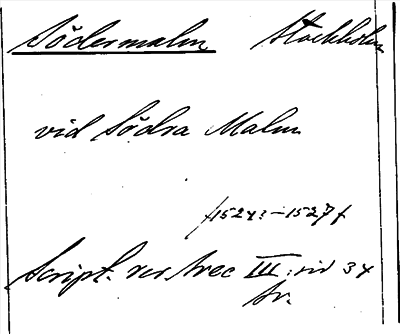 Södermalm Stockholm
vid Södra Malm
/1524?-1527/
Script. rer. svec III: sid 34
br.